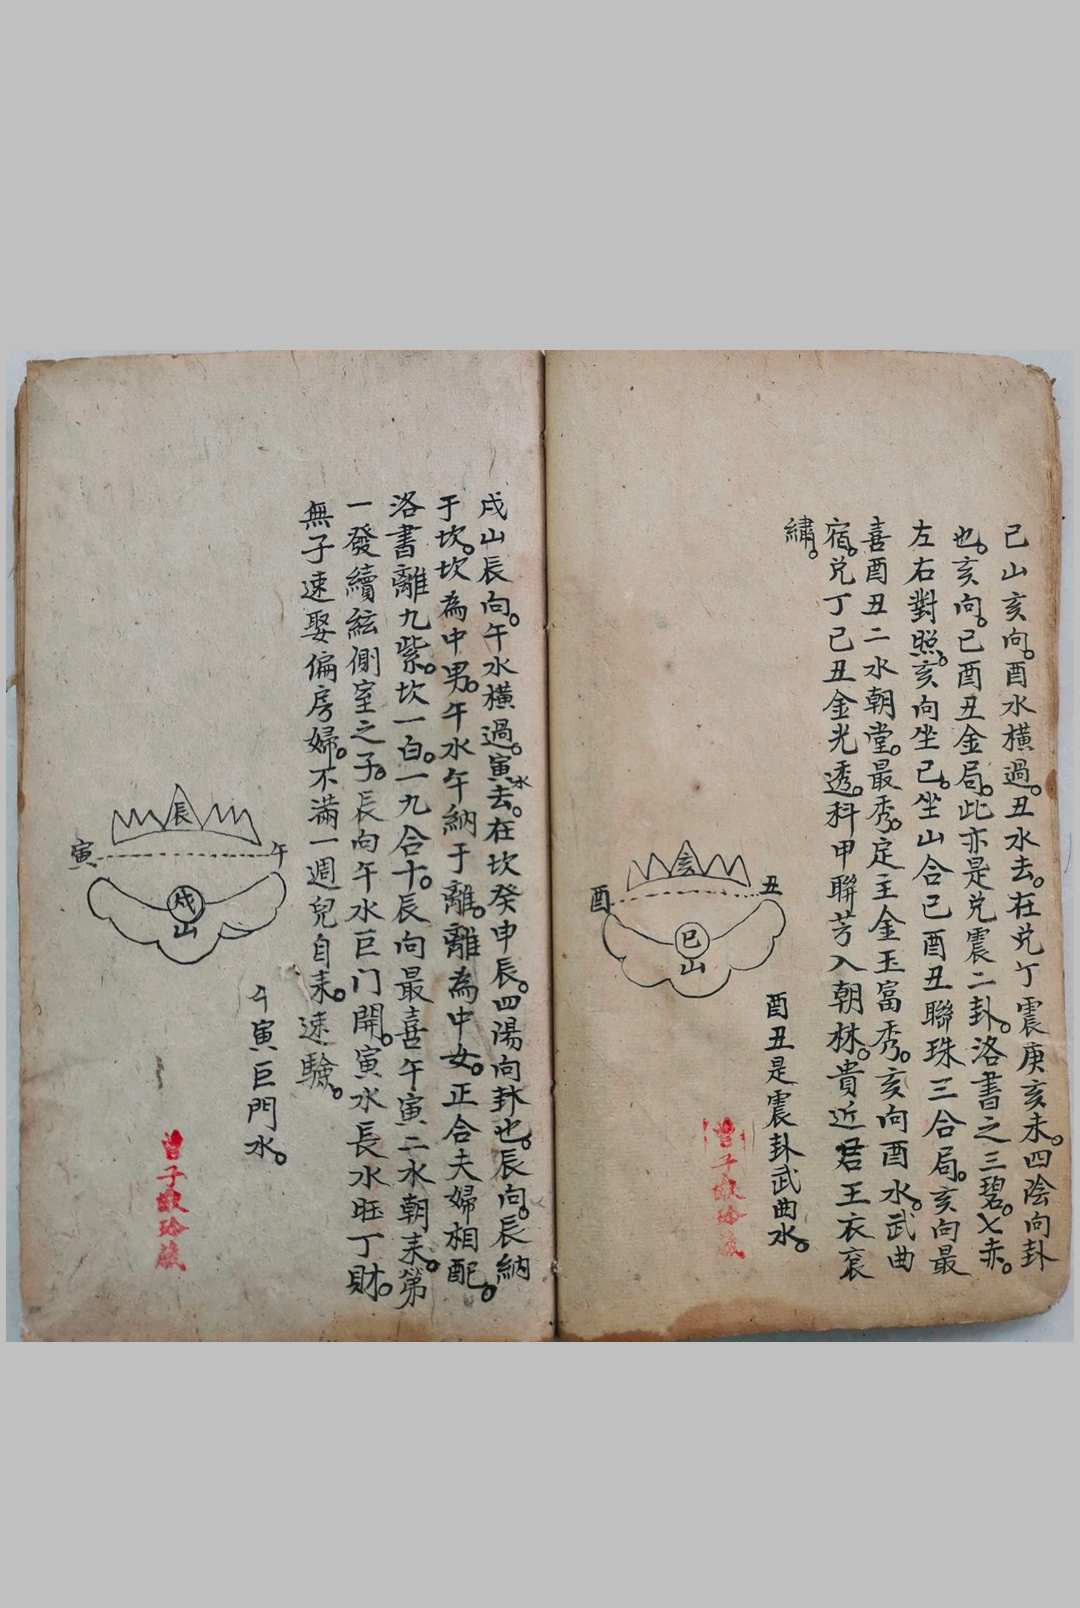 巳山亥向。酉水橫過。丑水去。在兑丁震庚亥未。四陰向卦
也。亥向。巳酉丑金局。此亦是兑震二卦。洛書之三碧。七赤。
左右對照。亥向坐巳。坐山合巳酉丑聯珠三合局。亥向最
喜酉丑二水朝堂。最秀。定主金玉富秀。亥向酉水。武曲
宿。兑丁巳丑金光透。科甲聯芳入朝林。貴近君王衣衮
繡。
亥
酉
丑
巳
山
酉丑是震卦武曲水。
曾子
珍藏
戌山辰向。午水橫過。寅水去。在坎癸申辰。四陽向卦也。辰向。辰納
于坎。坎為中男。午水午納于離。離為中女。正合夫婦相配。
洛書離九紫。坎一白。一九合十。辰向最喜午寅二水朝来。第
一發續絃側室之子。辰向午水巨门開。寅水長水旺丁財。
無子速娶偏房婦。不滿一週兒自来。速驗。
辰
寅
午
戌
山
午寅巨門水。
曾子
珍藏